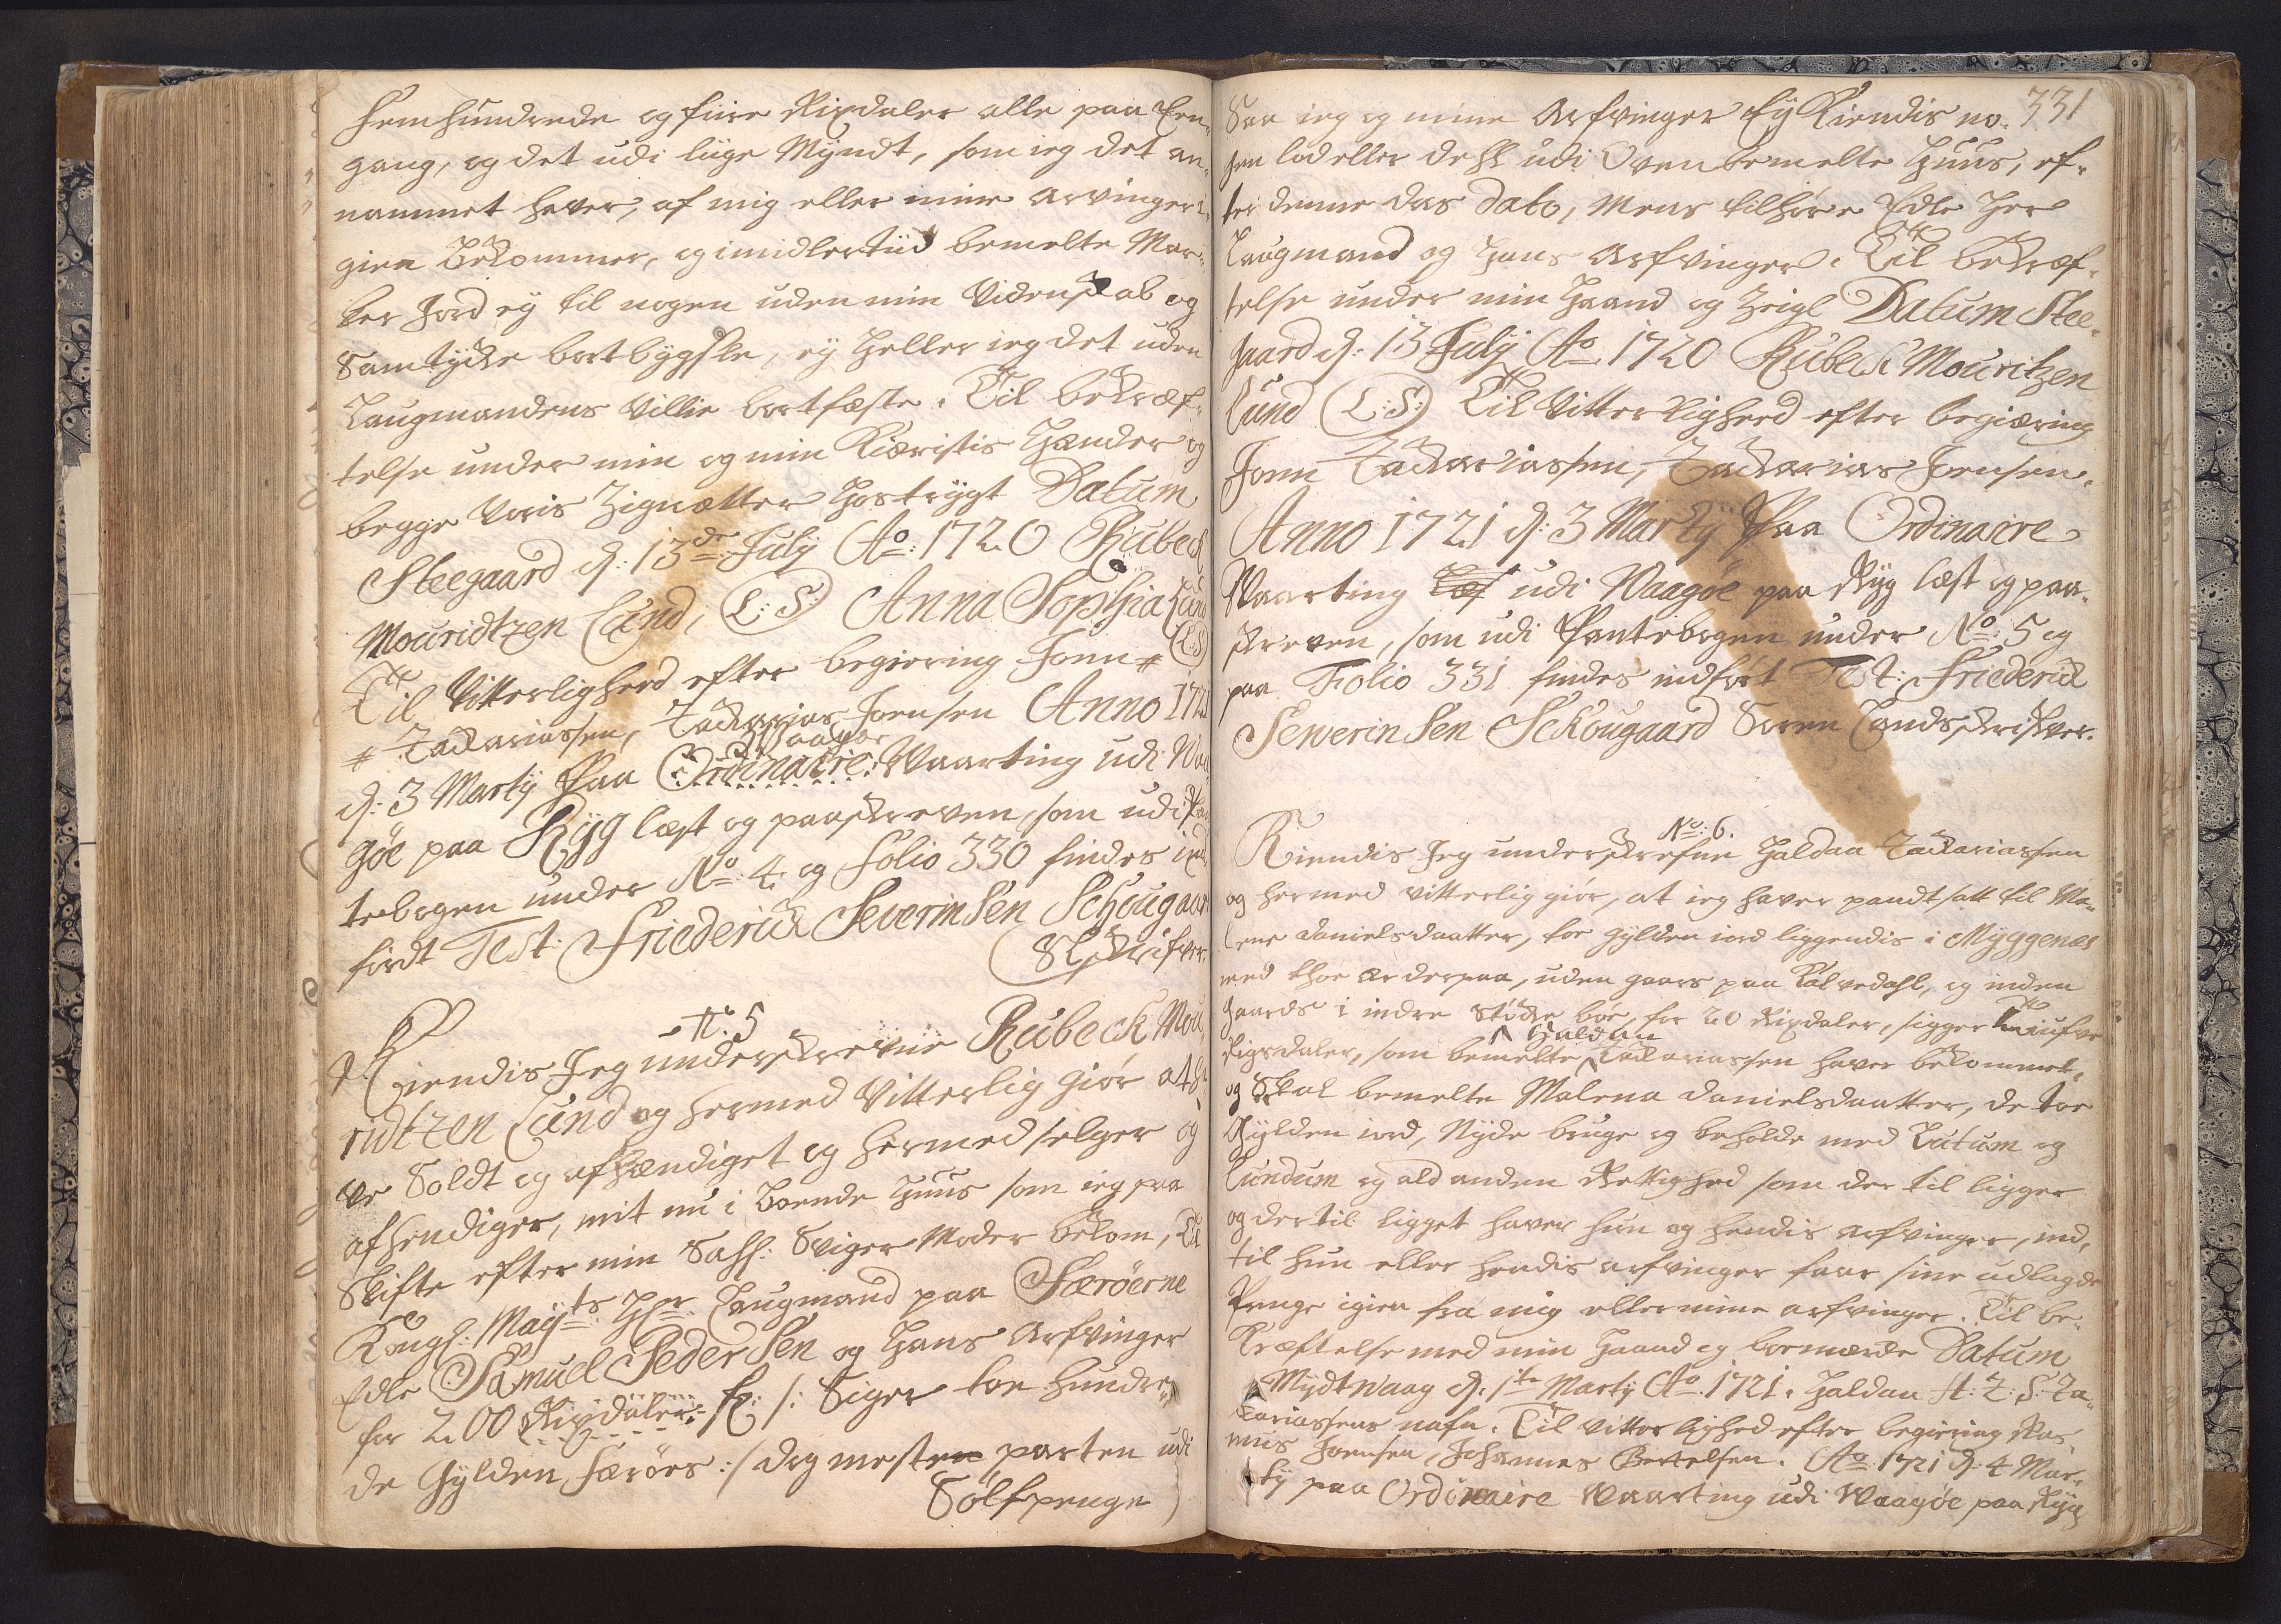 femhundrede og fiire Rixdaler alle paa Een-
gang, og det udi liige Myndt, som ieg det an-
nammet hafver, af mig eller mine arvinger i-
gien bekommer, og imidlertiid bemelte Mar-
ker Jord ey til nogen uden min Videnskab og
Samtycke bortbygsle, ey heller ieg det uden
Laugmandens Villie bortfæste. Til bekræf-
telse under min og min Kiæristis Hænder og
begge voris Zignetter hostrygt Datum
Steegaard d: 13de July Ao: 1720 Rubeck
Mouridtzen Lund, (L:S) Anna Sophia Lund
(L:S)
Til Vitterlighed efter begiering Joen #
# Zackariassen, Zackarias Joensen Anno 1721
d: 3 Marty Paa Ordinaire Waarting udi Waa-
göe paa Ryg læst og paaskreven, som udi Pan-
tebogen under No 4 og Folio 330 findes ind-
fördt Test: Friderich SeverinSen Schougaard
SLSkrifver.
No. 5
Kiendis Jeg underskrevne Rubeck Mou-
ridtzen Lund og hermed Vitterlig giör at ha-
ve Soldt og afhændiget og hermed selger og
afhendiger, mit nu i boende Huus som ieg paa
Skifte efter min Sahl: Sviger Moder bekom, til
Kongl: Mayts: Hr: Laugmand paa Færöerne
Edle Samuel PederSen og Hans Arfvinger
for 200 Rixdaler /: Siger toe hundre-
de Gylden færöes :/ dog mesten parten udi
Sölfpenge
331
Saa ieg og mine Arfvinger Ey Kiendis no-
gen lod eller dehl udi Ovenbemelte Huus, ef-
ter denne das dato, mens tilhöre Edle Her
Laugmand og Hans Arfvinger. Til bekræf-
telse under min Haand og Zeigl Datum Stee-
gaard d: 13 July Ao 1720 Rubeck Mouritzen
Lund (L:S:) Til Vitterlighed efter begiæring
Joen Zackariassen, Zackarias Joensen.
Anno 1721 d: 3 Marty Paa Ordinaire
Waarting udi Waagöe paa Ryg læst og paa-
skreven, som udi Pantebogen under No: 5 og
paa Folio 331 findes indfört Test: Friederich
SewerinSen Sckougaard Soren Landskrifver.
No: 6.
Kiendis Jeg underskrefne Haldan Zackariassen
og hermed vitterlig giör, at ieg haver pandtsatt til Ma-
lene danielsdaatter, toe gylden iord liggendis i Myggenæs
med thoe ær derpaa, uden gaars paa Kalvedahl, og inden
gaards i indre Stycke böe, for 20 Rixdaler, siger tiufve
Rigsdaler, som bemelte Haldan Zackariassen haver bekommet,
og Skal bemelte Malena danielsdaatter, de toe
Gylden iord, Nyde bruge og beholde med Lutum og
Lundum og ald anden Rettighed som der til ligger
og dertil ligget haver hun og hendis arfvinger, ind-
til hun eller hendis arfvinger faar sine udlagde
Penge igien fra mig eller mine arfvinger. Til be-
Kræftelse med min Haand og boemærcke Datum
Mydtwaag d: 1te Marty Ao 1721. Haldan H: Z: S: Za-
kariassens nafn. Til vitterlighed efter begiering Ras-
mus Joensen, Johannes Bertelsen. Ao 1721 d: 4 Mar-
ty paa Ordinaire Waarting udi Waagöe paa Ryg